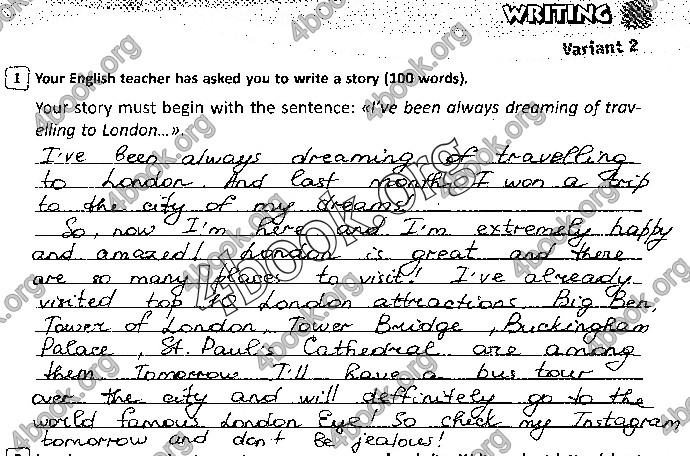 WRITING
Variant 2
1 Your English teacher has asked you to write a story (100 words).
Your story must begin with the sentence: «I've been always dreaming of trav-
elling to London...».
I've been always dreaming of travelling
to London. And last month I won a trip
to the city of my dreams!
So, now I'm here and I'm extremely happy
and amazed! London is great and there
are so many places to visit! I've already
visited top 10 London attractions. Big Ben,
Tower of London, Tower Bridge, Buckingham
Palace, St. Paul's Cathedral are among
them. Tomorrow I'll have a bus tour
over the city and will deffinitely go to the
world famous London Eye! So check my Instagram
tomorrow and don't be jealous!
4book.org